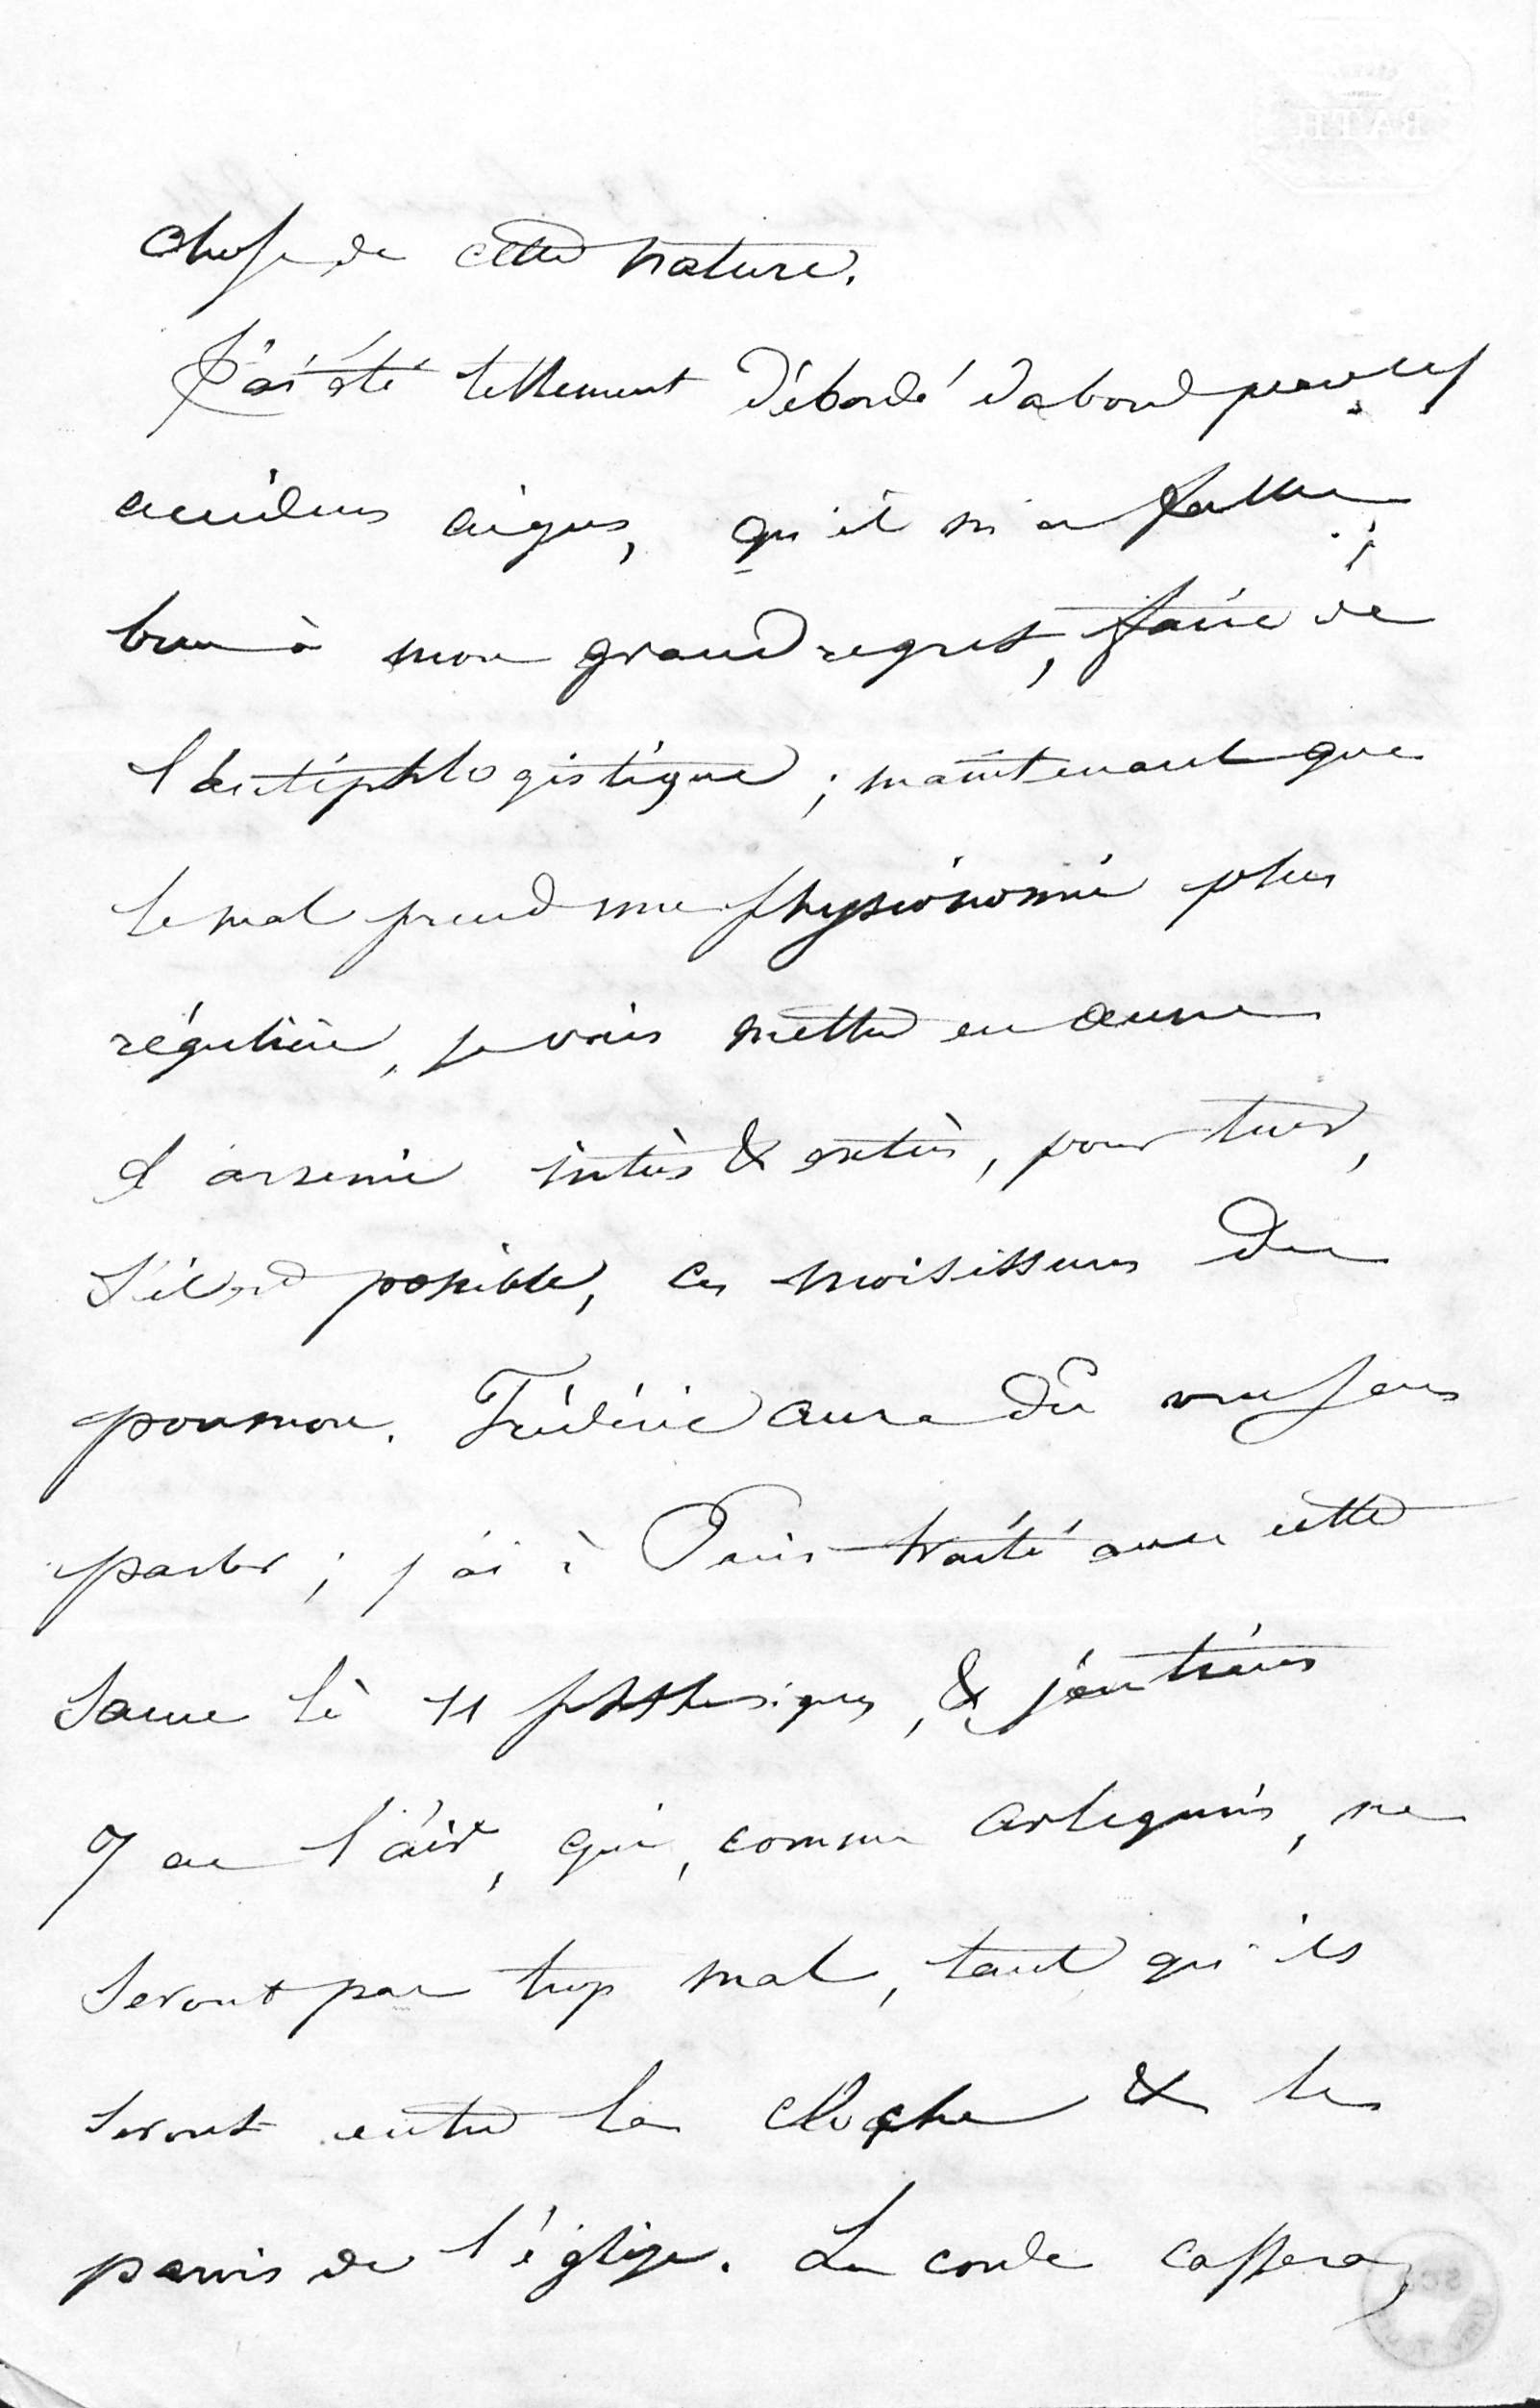 BATH
chose de cette nature.
J'ai été tellement débordé d'abord par les
accidens aigus, qu'il m'a fallu,
bien à mon grand regret, faire de
l'antiphlogistique ; maintenant que
le mal prend une physionomie plus
régulière, je vais mettre en œuvre
l'arsenic intùs & extùs, pour tuer,
s'il est possible, ces moisissures du
poumon. Frédéric aura dû vous en
parler ; j'ai à Paris traité avec cette
sauce là 11 phthisiques, & j'en tiens
7 en l'air, qui, comme arlequin, ne
seront pas trop mal, tant qu'ils
seront entre la cloche & le
parvis de l'église. La corde cassera,